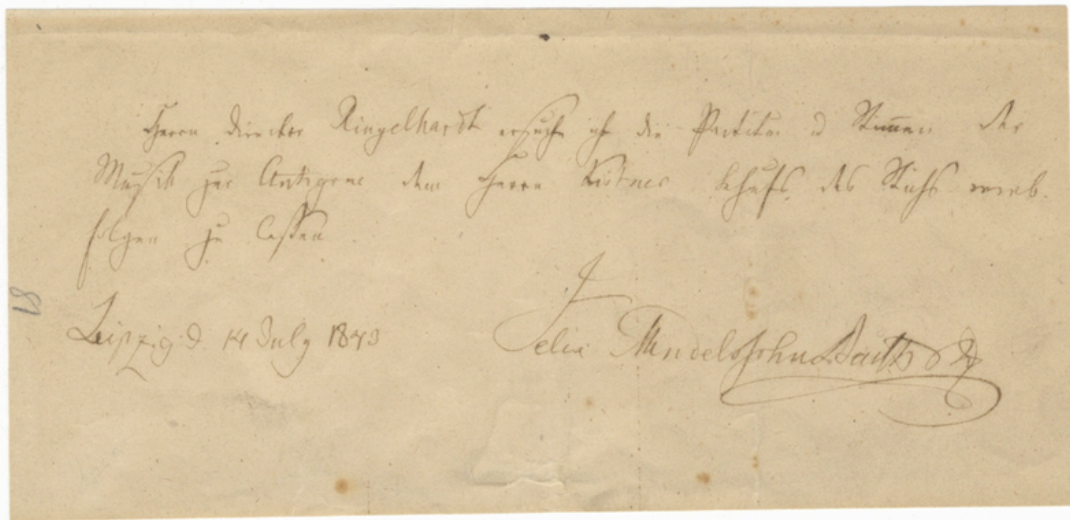 Herrn Director Ringelhardt ersuche ich die Partitur u Stimmen der
Musik zur Antigone dem Herrn Kistner behufs des Stichs verab-
folgen zu lassen
Leipzig d. 14 July 1843
Felix Mendelssohn Bartholdy
81